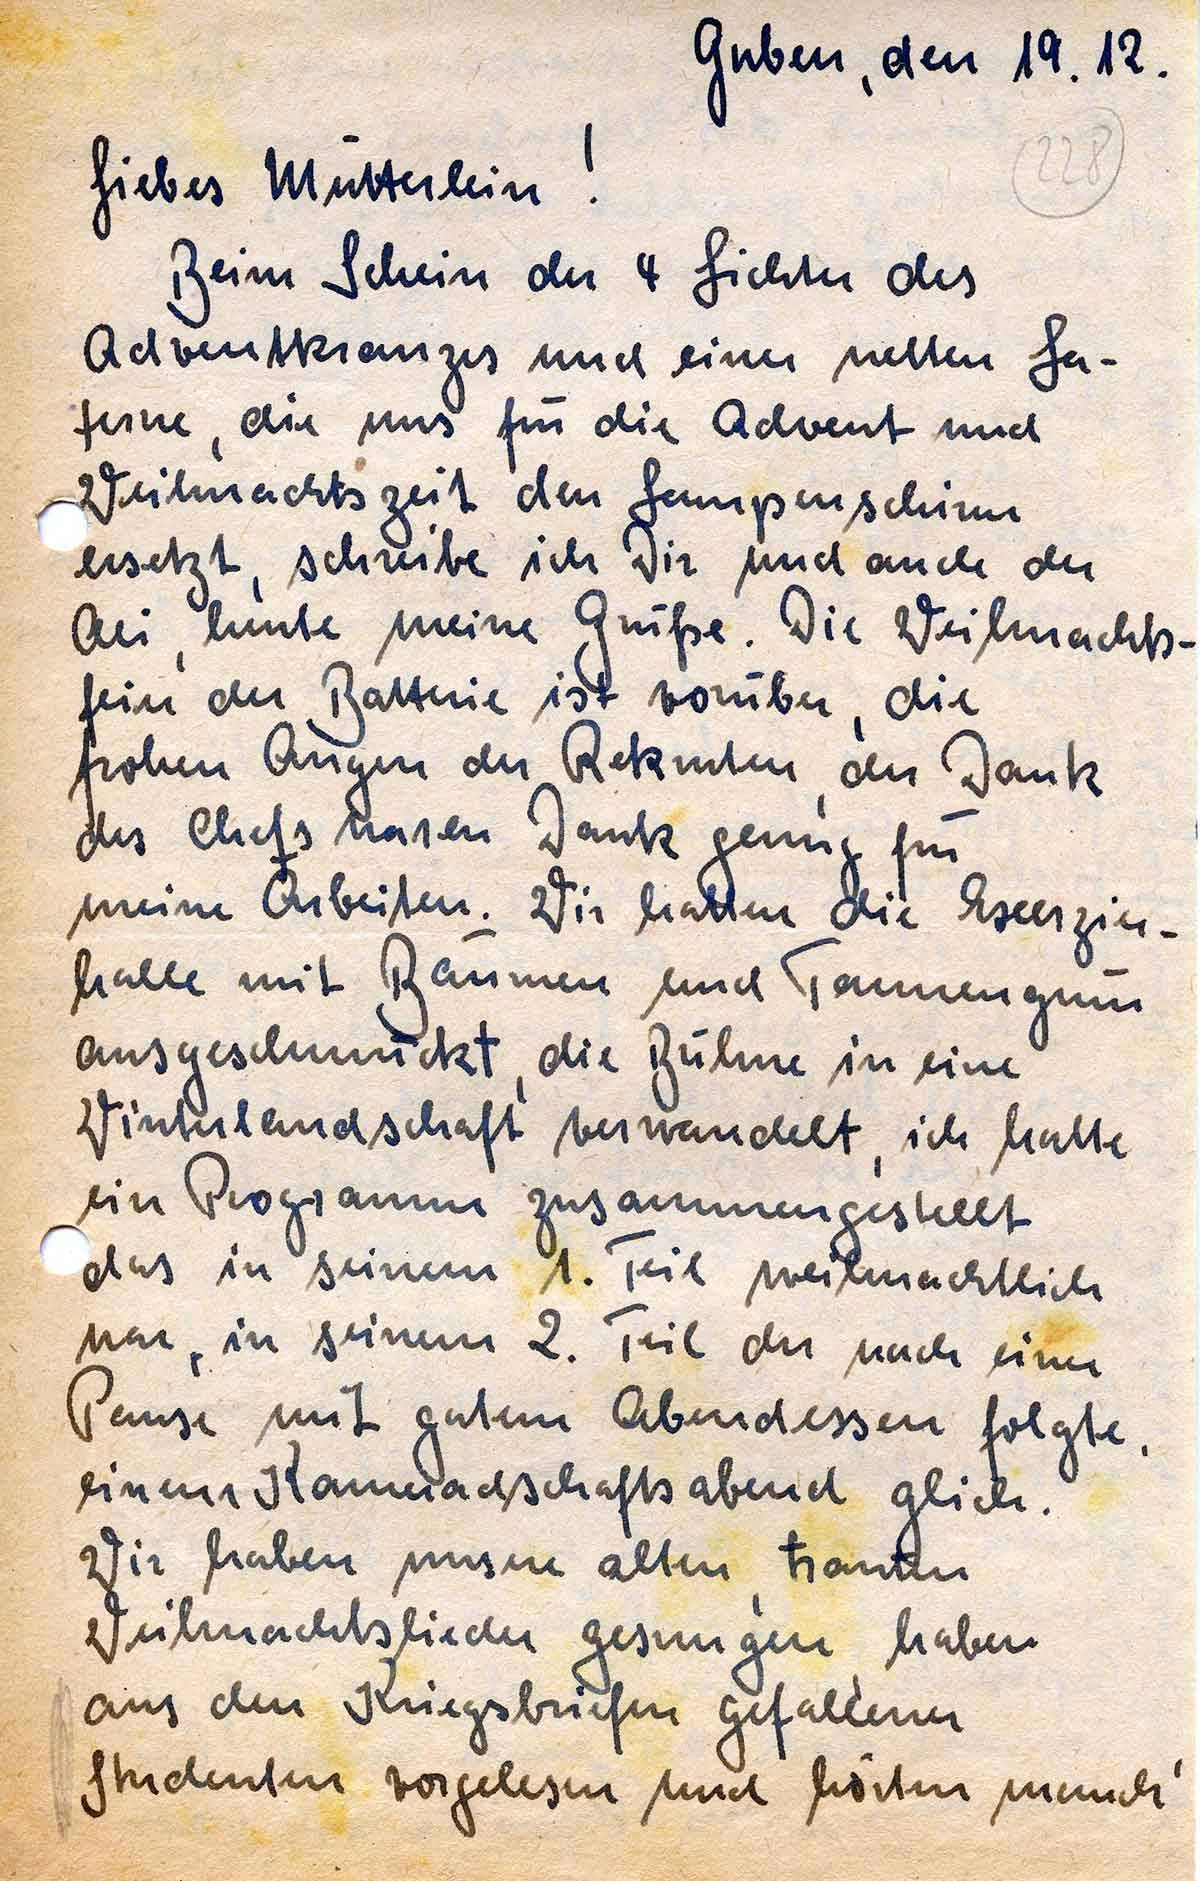 Guben, den 19. 12.
228
Liebes Mütterlein!
Beim Schein der 4 Lichter des
Adventkranzes und einer netten La-
terne, die uns für die Advent und
Weihnachtszeit den Lampenschirm
ersetzt, schreibe ich Dir und auch der
Aei, heute meine Grüße. Die Weihnachts-
feier der Batterie ist vorüber, die
frohen Augen der Rekruten, der Dank
des Chefs waren Dank genug für
meine Arbeiten. Wir hatten die Exerzier-
halle mit Bäumen und Tannengrün
ausgeschmückt, die Bühne in eine
Winterlandschaft verwandelt, ich hatte
ein Programm zusammengestellt
das in seinem 1. Teil weihnachtlich
war, in seinem 2. Teil der nach einer
Pause mit gutem Abendessen folgte,
einem Kameradschaftsabend glich.
Wir haben unsere alten, trauten
Weihnachtslieder gesungen, haben
aus den Kriegsbriefen gefallener
Studenten vorgelesen und hörten manch'